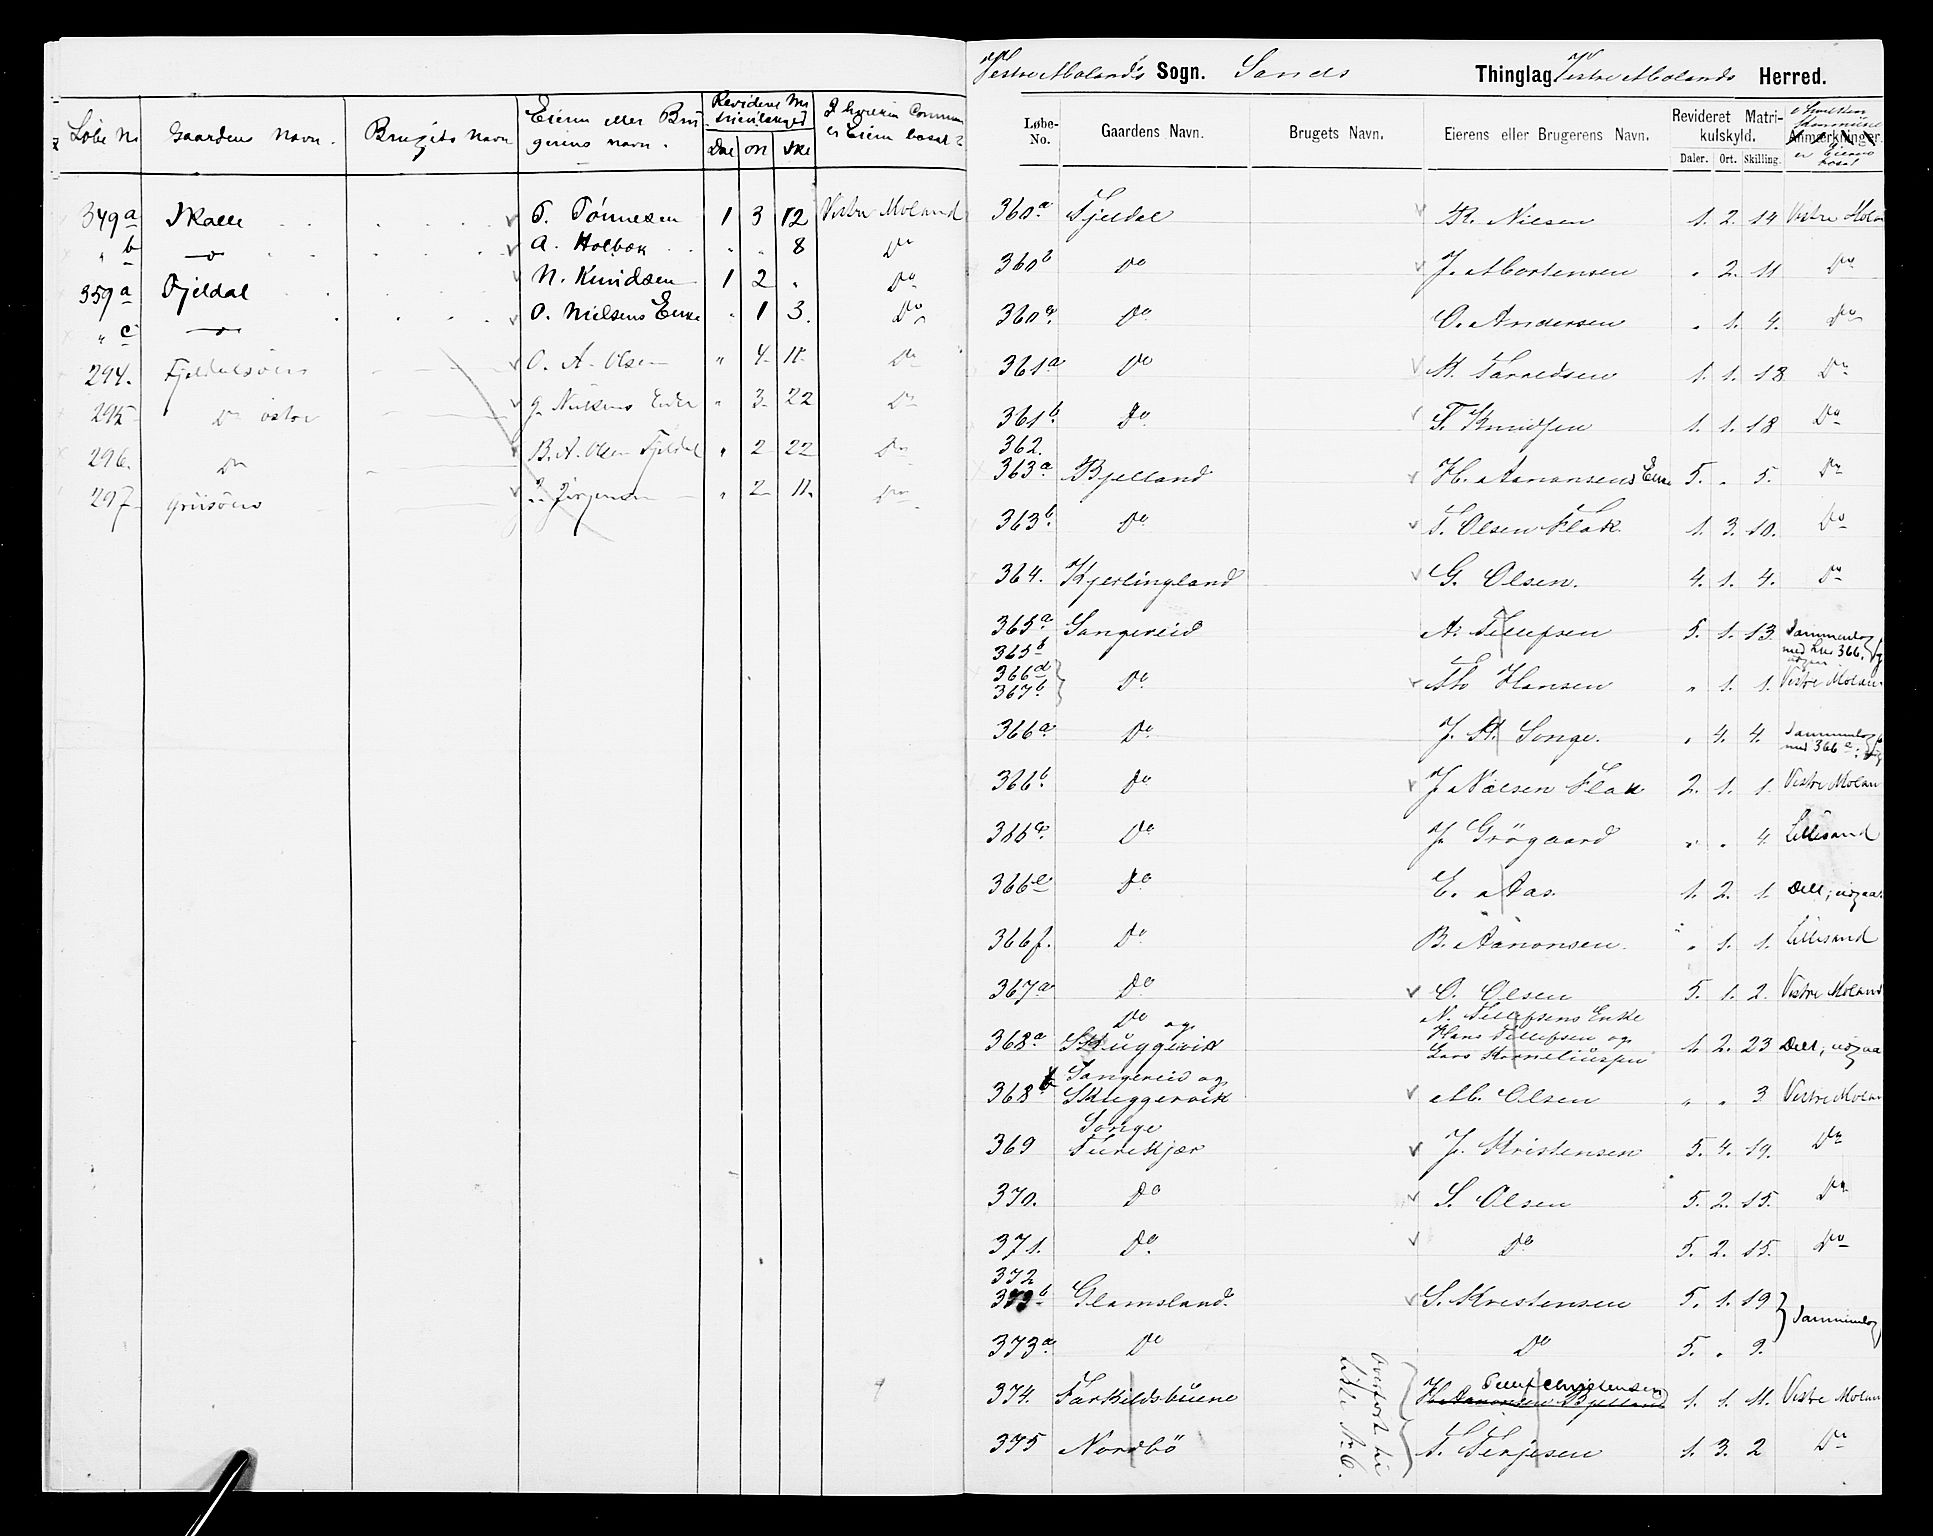 Løbe No Gaardens Navn. Brugets Navn Eierens eller Bru-
gerens navn. Revideret Ma-
trikulskyld Dal ort Ski I hvilken Commun
er Eieren bosat?
349a Skalle T. Tønnesen 1 3 12 Vestre Moland
" b — A. Holbæk " " 8 Do
359a Fjeldal N. Knudsen 1 2 " Do
" c — O. Nielsens Enke " 1 3. Do
294. Fjeldalsøens O. A. Olsen " 4 11. Do
295 Do østre G. Nielsens Enke " 3 22 Do
296. Do B. A. Olsen Fjeldal " 2 22 Do
297 Griisøens Jørgensen " 2 11. Do
Vestre Molands Sogn. Sands Thinglag Vestre Molands Herred.
Løbe-
No. Gaardens Navn. Brugets Navn. Eierens eller Brugerens Navn. Revideret Matri-
kulskyld. Daler. Ort. Skilling. Anmærkninger.
I hvilken
Kommune
er Eieren
bosat
360a Fjeldal R. Nilsen 1. 2. 14 Vestre Molan
360b Do J. Mortensen " 2. 11 Do
360c. Do O. Andersen " 1. 4. Do
361a Do M. Taraldsen 1. 1. 18 Do
361b. Do T. Knudsen 1. 1. 18 Do
362.
363a Bjelland H. Aanonsens Enke 5. " 5. Do
363b. Do T. Olsen Flak 1. 3. 10. Do
364. Kjerlingland G. Olsen. 4. 1. 4. Do
365a. Sangereid A. Tellefsen 5. 1. 13 Sammenlog
med Lno 366.
365b
366d
367b. Do Th. Hansen " 1. 1. Vestre Molan
366a. Do J. A. Songe. " 4. 4. Sammenlog
med 366
366b. Do J. Nielsen Flak 2. 1. 1. Vestre Molan
366c. Do J. Grögaard " " 4. Lillesand
366e Do E. Aas. 1. 2. 1. Delt, udgaa.
366f. Do B. Aanonsen. " 1. 1. Lillesand
367a Do O. Olsen 5. 1. 2. Vestre Moland
Do og
368a Skuggevik N. Tellefsens Enke
Hans Tellefsen og
Lars Korneliussen 1. 2. 23 Delt, udgaa
Sangereid og
368b Skuggevik M. Olsen " " 3 Vestre Molan
Songe
369 Tuvekjær J. Kristensen 5. 4. 19. Do
370. Do S. Olsen 5. 2. 15. Do
371. Do Do 5. 2. 15. Do
372
373b Glamsland. S. Kristensen 5. 1. 19 Sammenlog
373a. Do Do 5. " 9.
374. Tarkildsbuene Tellef Christensen
H. Aanonsen Bjelland 1. 1. 11. Vestre Molan
375 Nordbö T. Terjesen 1. 3. 2 Do
Overfört til